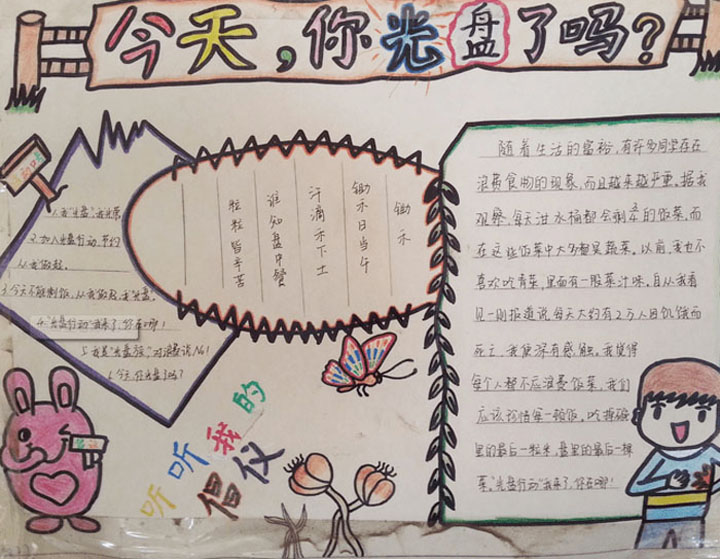 今天,你光盘了吗?
1.我"光盘",我光荣
2.加入光盘行动,节约
从我做起.
3.今天不能剩饭,从我做起,我"光盘".
4."光盘行动"我来了,你在哪!
5.我是"光盘族"对浪费说No!
6.今天,你光盘了吗?
锄禾
锄禾日当午
汗滴禾下土
谁知盘中餐
粒粒皆辛苦
随着生活的富裕,有许多同学存在
浪费食物的现象,而且越来越严重,据我
观察,每天泔水桶都会剩的饭菜,而
在这些饭菜中大多都是蔬菜。以前,我也不
喜欢吃青菜,里面有一股菜汁味,自从我看
见一则报道说每天大约有2万人因饥饿而
死亡,我便深有感触。我觉得
每个人都不应浪费饭菜,我们
应该珍惜每一顿饭。吃掉碗
里的最后一粒米,盘里的最后一棵
菜."光盘行动"我来了,你在哪!
听听我的
倡仪